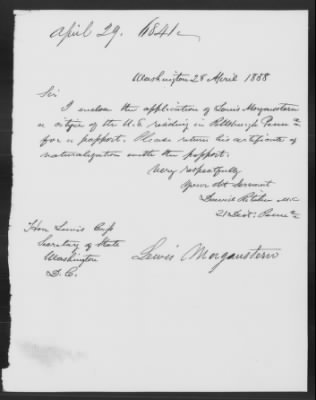 April 29. 6841
Washington 28 April 1858
Sir
I enclose the application of Louis Morganstern
a citizen of the U.S. residing in Pittsburgh Penna
for a passport. Please return his certificate of
naturalization with the passport.
Very respectfully
Your Obt Servant
David Ritchie M.C
21 Dist: Penna
Hon Lewis Cass
Secretary of State
Washington
D.C.
Lewis Morganstern